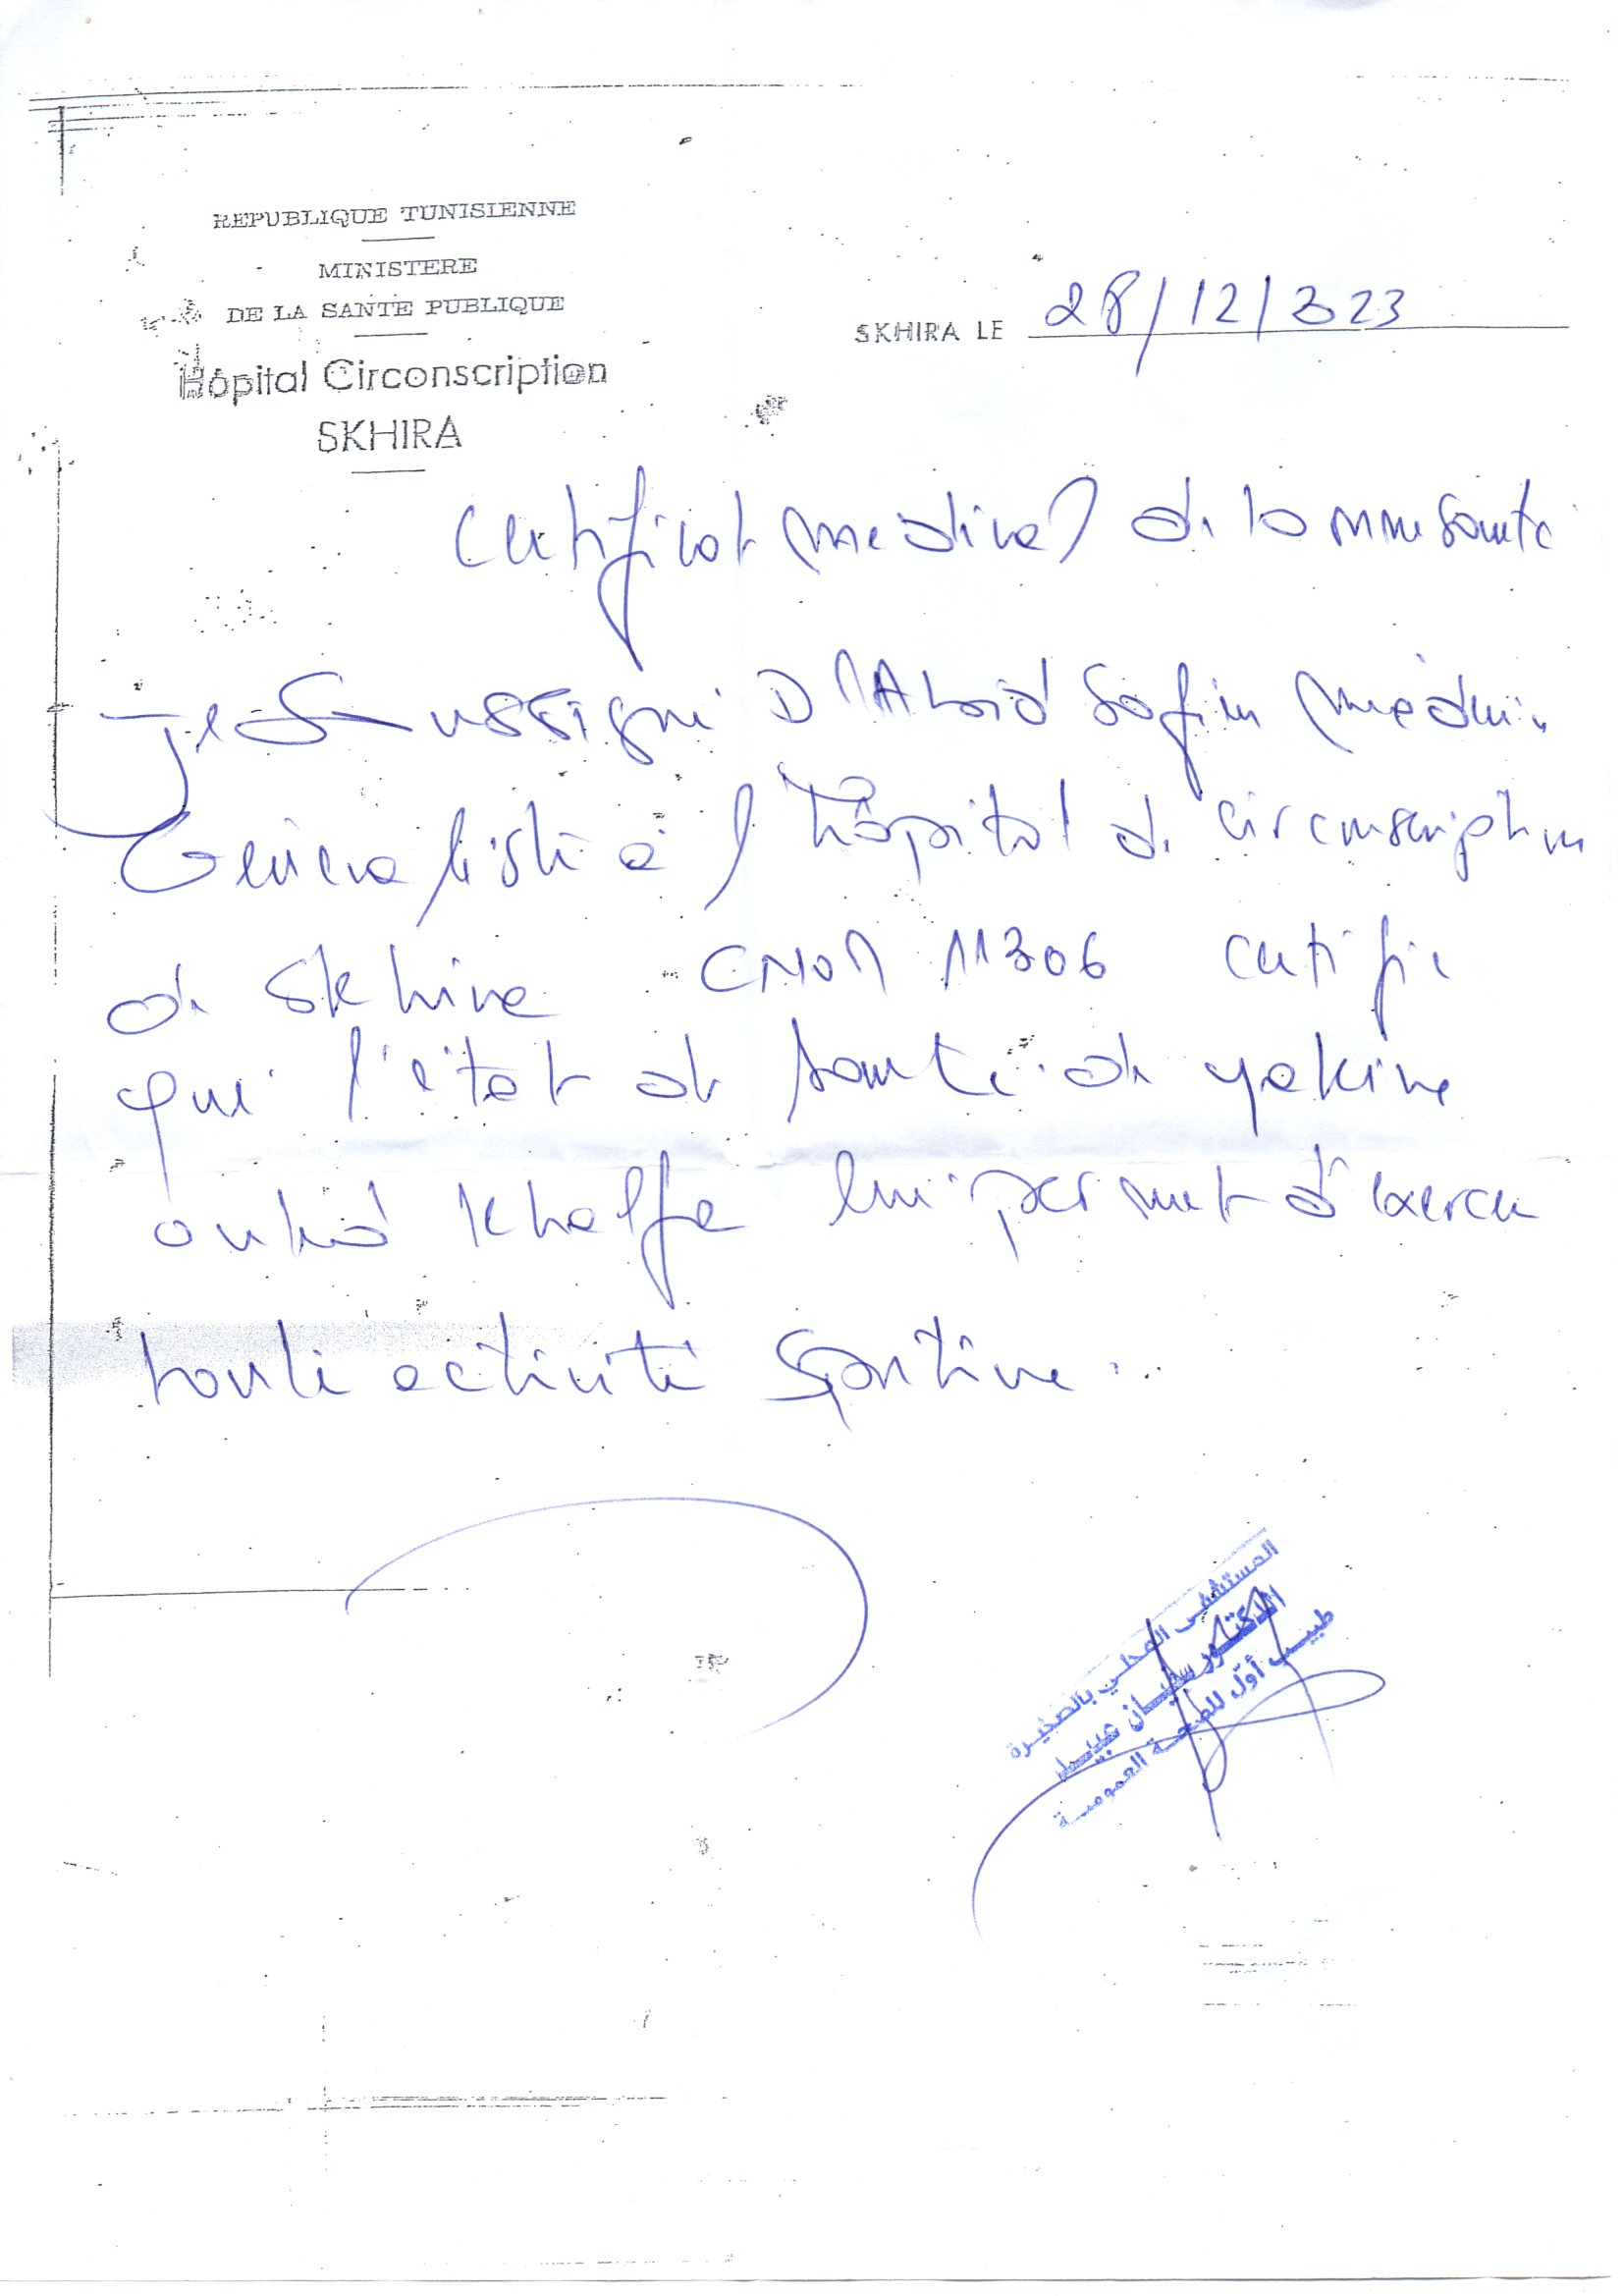 REPUBLIQUE TUNISIENNE
MINISTERE
DE LA SANTE PUBLIQUE
Hôpital Circonscription
SKHIRA
SKHIRA LE 28/12/2023
Certificat medical de bonne santé
Je Soussigné Dr Abid Sofien médecin
Généraliste à l'hôpital de circonscription
de Skhira CNOM 11306 certifie
que l'état de santé de yakine
ouled Khalfa lui permet d'exercer
toute activité sportive.
المستشفى المحلي بالصخيرة
الدكتور سفيان عبيد
طبيب أوّل للصحة العمومية